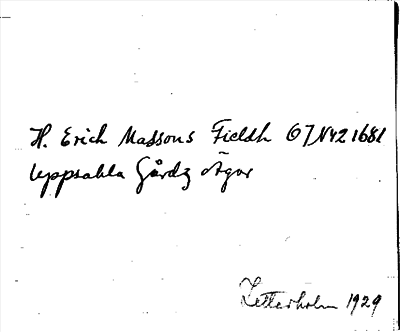 H. Erich Massons Fieldh 67 N42 1681
Uppsahla Gårdz Ägor
Zetterholm 1929